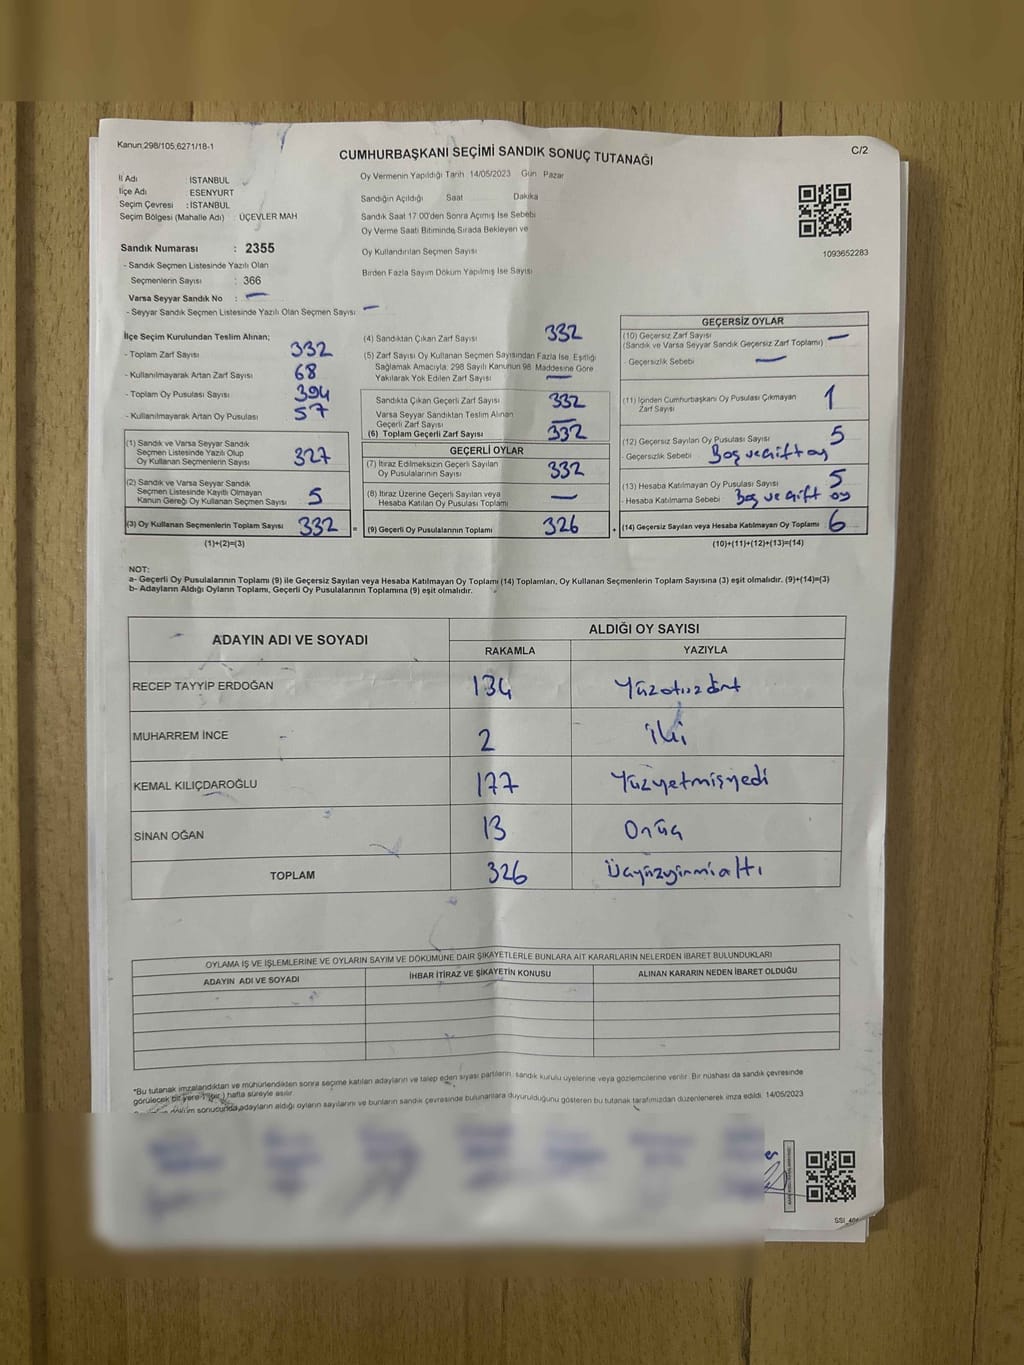 Kanun;298/105,6271/18-1
C/2
CUMHURBAŞKANI SEÇİMİ SANDIK SONUÇ TUTANAĞI
İl Adı : İSTANBUL
İlçe Adı : ESENYURT
Seçim Çevresi : İSTANBUL
Seçim Bölgesi (Mahalle Adı) : ÜÇEVLER MAH
Sandık Numarası : 2355
- Sandık Seçmen Listesinde Yazılı Olan
Seçmenlerin Sayısı : 366
Varsa Seyyar Sandık No : —
- Seyyar Sandık Seçmen Listesinde Yazılı Olan Seçmen Sayısı : —
Oy Vermenin Yapıldığı Tarih 14/05/2023 Gün Pazar
Sandığın Açıldığı Saat Dakika
Sandık Saat 17.00'den Sonra Açımış İse Sebebi
Oy Verme Saati Bitiminde Sırada Bekleyen ve
Oy Kullandırılan Seçmen Sayısı
Birden Fazla Sayım Döküm Yapılmış İse Sayısı
1093652283
İlçe Seçim Kurulundan Teslim Alınan;
- Toplam Zarf Sayısı 332
- Kullanılmayarak Artan Zarf Sayısı 68
- Toplam Oy Pusulası Sayısı 394
- Kullanılmayarak Artan Oy Pusulası 57
(1) Sandık ve Varsa Seyyar Sandık
Seçmen Listesinde Yazılı Olup
Oy Kullanan Seçmenlerin Sayısı 327
(2) Sandık ve Varsa Seyyar Sandık
Seçmen Listesinde Kayıtlı Olmayan
Kanun Gereği Oy Kullanan Seçmen Sayısı 5
(3) Oy Kullanan Seçmenlerin Toplam Sayısı 332 =
(1)+(2)=(3)
(4) Sandıktan Çıkan Zarf Sayısı 332
(5) Zarf Sayısı Oy Kullanan Seçmen Sayısından Fazla İse, Eşitliği
Sağlamak Amacıyla; 298 Sayılı Kanunun 98. Maddesine Göre
Yakılarak Yok Edilen Zarf Sayısı —
Sandıkta Çıkan Geçerli Zarf Sayısı 332
Varsa Seyyar Sandıktan Teslim Alınan
Geçerli Zarf Sayısı —
(6) Toplam Geçerli Zarf Sayısı 332
GEÇERLİ OYLAR
(7) İtiraz Edilmeksizin Geçerli Sayılan
Oy Pusulalarının Sayısı 332
(8) İtiraz Üzerine Geçerli Sayılan veya
Hesaba Katılan Oy Pusulası Toplamı —
(9) Geçerli Oy Pusulalarının Toplamı 326 +
GEÇERSİZ OYLAR
(10) Geçersiz Zarf Sayısı
(Sandık ve Varsa Seyyar Sandık Geçersiz Zarf Toplamı) —
- Geçersizlik Sebebi —
(11) İçinden Cumhurbaşkanı Oy Pusulası Çıkmayan
Zarf Sayısı 1
(12) Geçersiz Sayılan Oy Pusulası Sayısı 5
- Geçersizlik Sebebi Boş ve çift oy
(13) Hesaba Katılmayan Oy Pusulası Sayısı 5
- Hesaba Katılmama Sebebi Boş ve çift oy
(14) Geçersiz Sayılan veya Hesaba Katılmayan Oy Toplamı 6
(10)+(11)+(12)+(13)=(14)
NOT:
a- Geçerli Oy Pusulalarının Toplamı (9) ile Geçersiz Sayılan veya Hesaba Katılmayan Oy Toplamı (14) Toplamları, Oy Kullanan Seçmenlerin Toplam Sayısına (3) eşit olmalıdır. (9)+(14)=(3)
b- Adayların Aldığı Oyların Toplamı, Geçerli Oy Pusulalarının Toplamına (9) eşit olmalıdır.
ADAYIN ADI VE SOYADI ALDIĞI OY SAYISI
RAKAMLA YAZIYLA
RECEP TAYYİP ERDOĞAN 134 Yüzotuzdört
MUHARREM İNCE 2 iki
KEMAL KILIÇDAROĞLU 177 Yüzyetmişyedi
SİNAN OĞAN 13 Onüç
TOPLAM 326 Üçyüzyirmialtı
OYLAMA İŞ VE İŞLEMLERİNE VE OYLARIN SAYIM VE DÖKÜMÜNE DAİR ŞİKAYETLERLE BUNLARA AİT KARARLARIN NELERDEN İBARET BULUNDUKLARI
ADAYIN ADI VE SOYADI İHBAR İTİRAZ VE ŞİKAYETİN KONUSU ALINAN KARARIN NEDEN İBARET OLDUĞU
*Bu tutanak imzalandıktan ve mühürlendikten sonra seçime katılan adayların ve talep eden siyasi partilerin, sandık kurulu üyelerine veya gözlemcilerine verilir. Bir nüshası da sandık çevresinde
görülecek bir yere 1 (bir) hafta süreyle asılır.
döküm sonucunda adayların aldığı oyların sayılarını ve bunların sandık çevresinde bulunanlara duyurulduğunu gösteren bu tutanak tarafımızdan düzenlenerek imza edildi. 14/05/2023